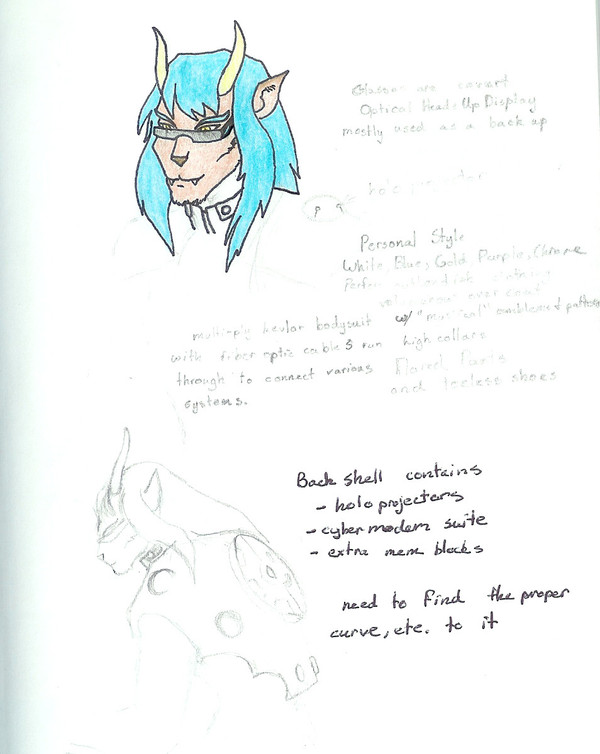 Glasses are covert
Optical Heads Up Display
mostly used as a back up
holo projector
Personal Style
White, Blue, Gold, Purple, Chrome
clothing
voluminous over coat
w/ "mystical" emblems + patterns
high collars
Flared Parts
and toeless shoes
multi-ply kevlar bodysuit
with fiber optic cables run
through to connect various
systems.
Back shell contains
- holo projectors
- cybermodem suite
- extra mem blocks
need to find the proper
curve, etc. to it